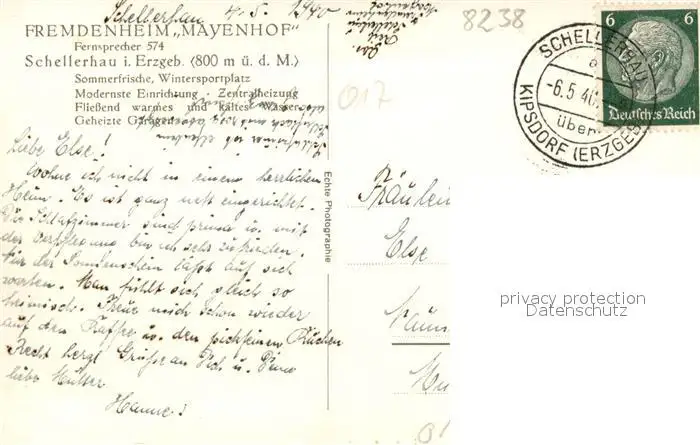 Schellerhau 4.5.1940
FREMDENHEIM „MAYENHOF"
Fernsprecher 574
Schellerhau i. Erzgeb. (800 m ü. d. M.)
Sommerfrische, Wintersportplatz
Modernste Einrichtung · Zentralheizung
Fließend warmes und kaltes Wasser
Geheizte Garagen
Liebe Else!
Wohne ich nicht in einem herrlichen
Heim. Es ist ganz nett eingerichtet.
Die Schlafzimmer sind prima u. mit
der Verpflegung bin ich sehr zufrieden.
Nur der Sonnenschein läßt auf sich
warten. Man fühlt sich gleich so
heimisch. Freue mich schon wieder
auf den Kaffee u. den pickfeinen Kuchen
Recht herzl. Grüße an Dich u. Deine
liebe Mutter
Hanne!
Echte Photographie
8238
017
Fräulein
Else
SCHELLERHAU
a
-6.5.40.
über
KIPSDORF (ERZGEB)
6 6
Deutsches Reich
privacy protection
Datenschutz